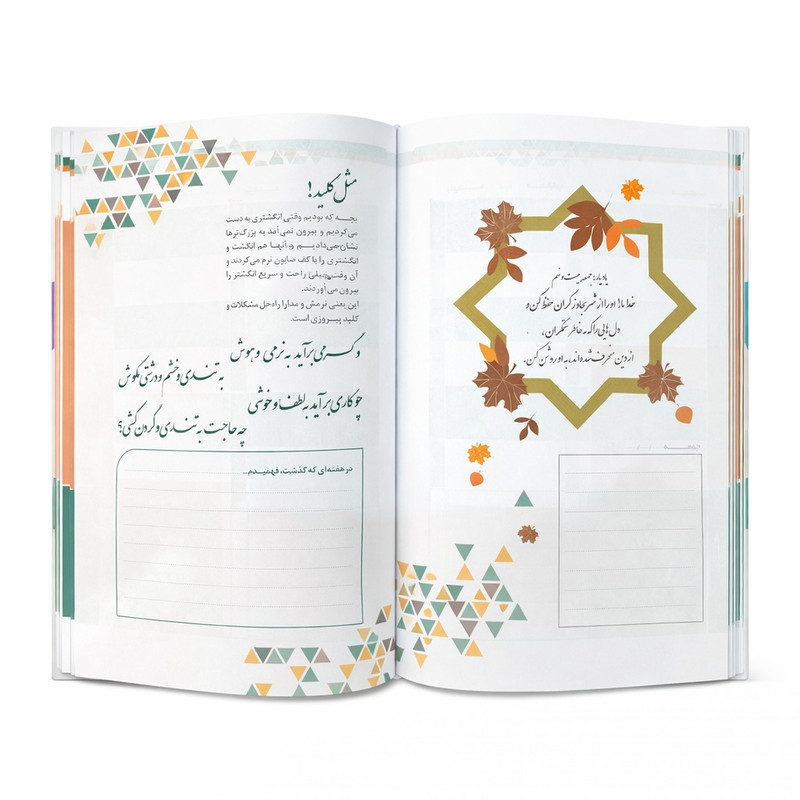 مثل کلید!
بچـــه که بودیم وقتی انگشتری به دست
می‌کردیم و بیرون نمی‌آمد به بزرگ‌ترها
نشان می‌دادیـــم و آنهـا هم انگشت و
انگشتری را با کف صابون نرم می‌کردند و
آن وقت خیلی راحت و سریع انگشتر را
بیرون می‌آوردند.
این یعنی نرمش و مدارا راه‌حل مشکلات و
کلید پیــروزی است.
وگر می برآید به نرمی و هوش
به تندی و خشم و درشتی مکوش
چو کاری برآید به لطف و خوشی
چه حاجت به تندی و گردن کشی؟
در هفته‌ای که گذشت، فهمیـدم..
خدایا! او را از شر تجاوزگران حفظ کن و
دل‌هایی را که به خاطر ستمگران،
از دین منحرف شده‌اند، به او روشن کن.